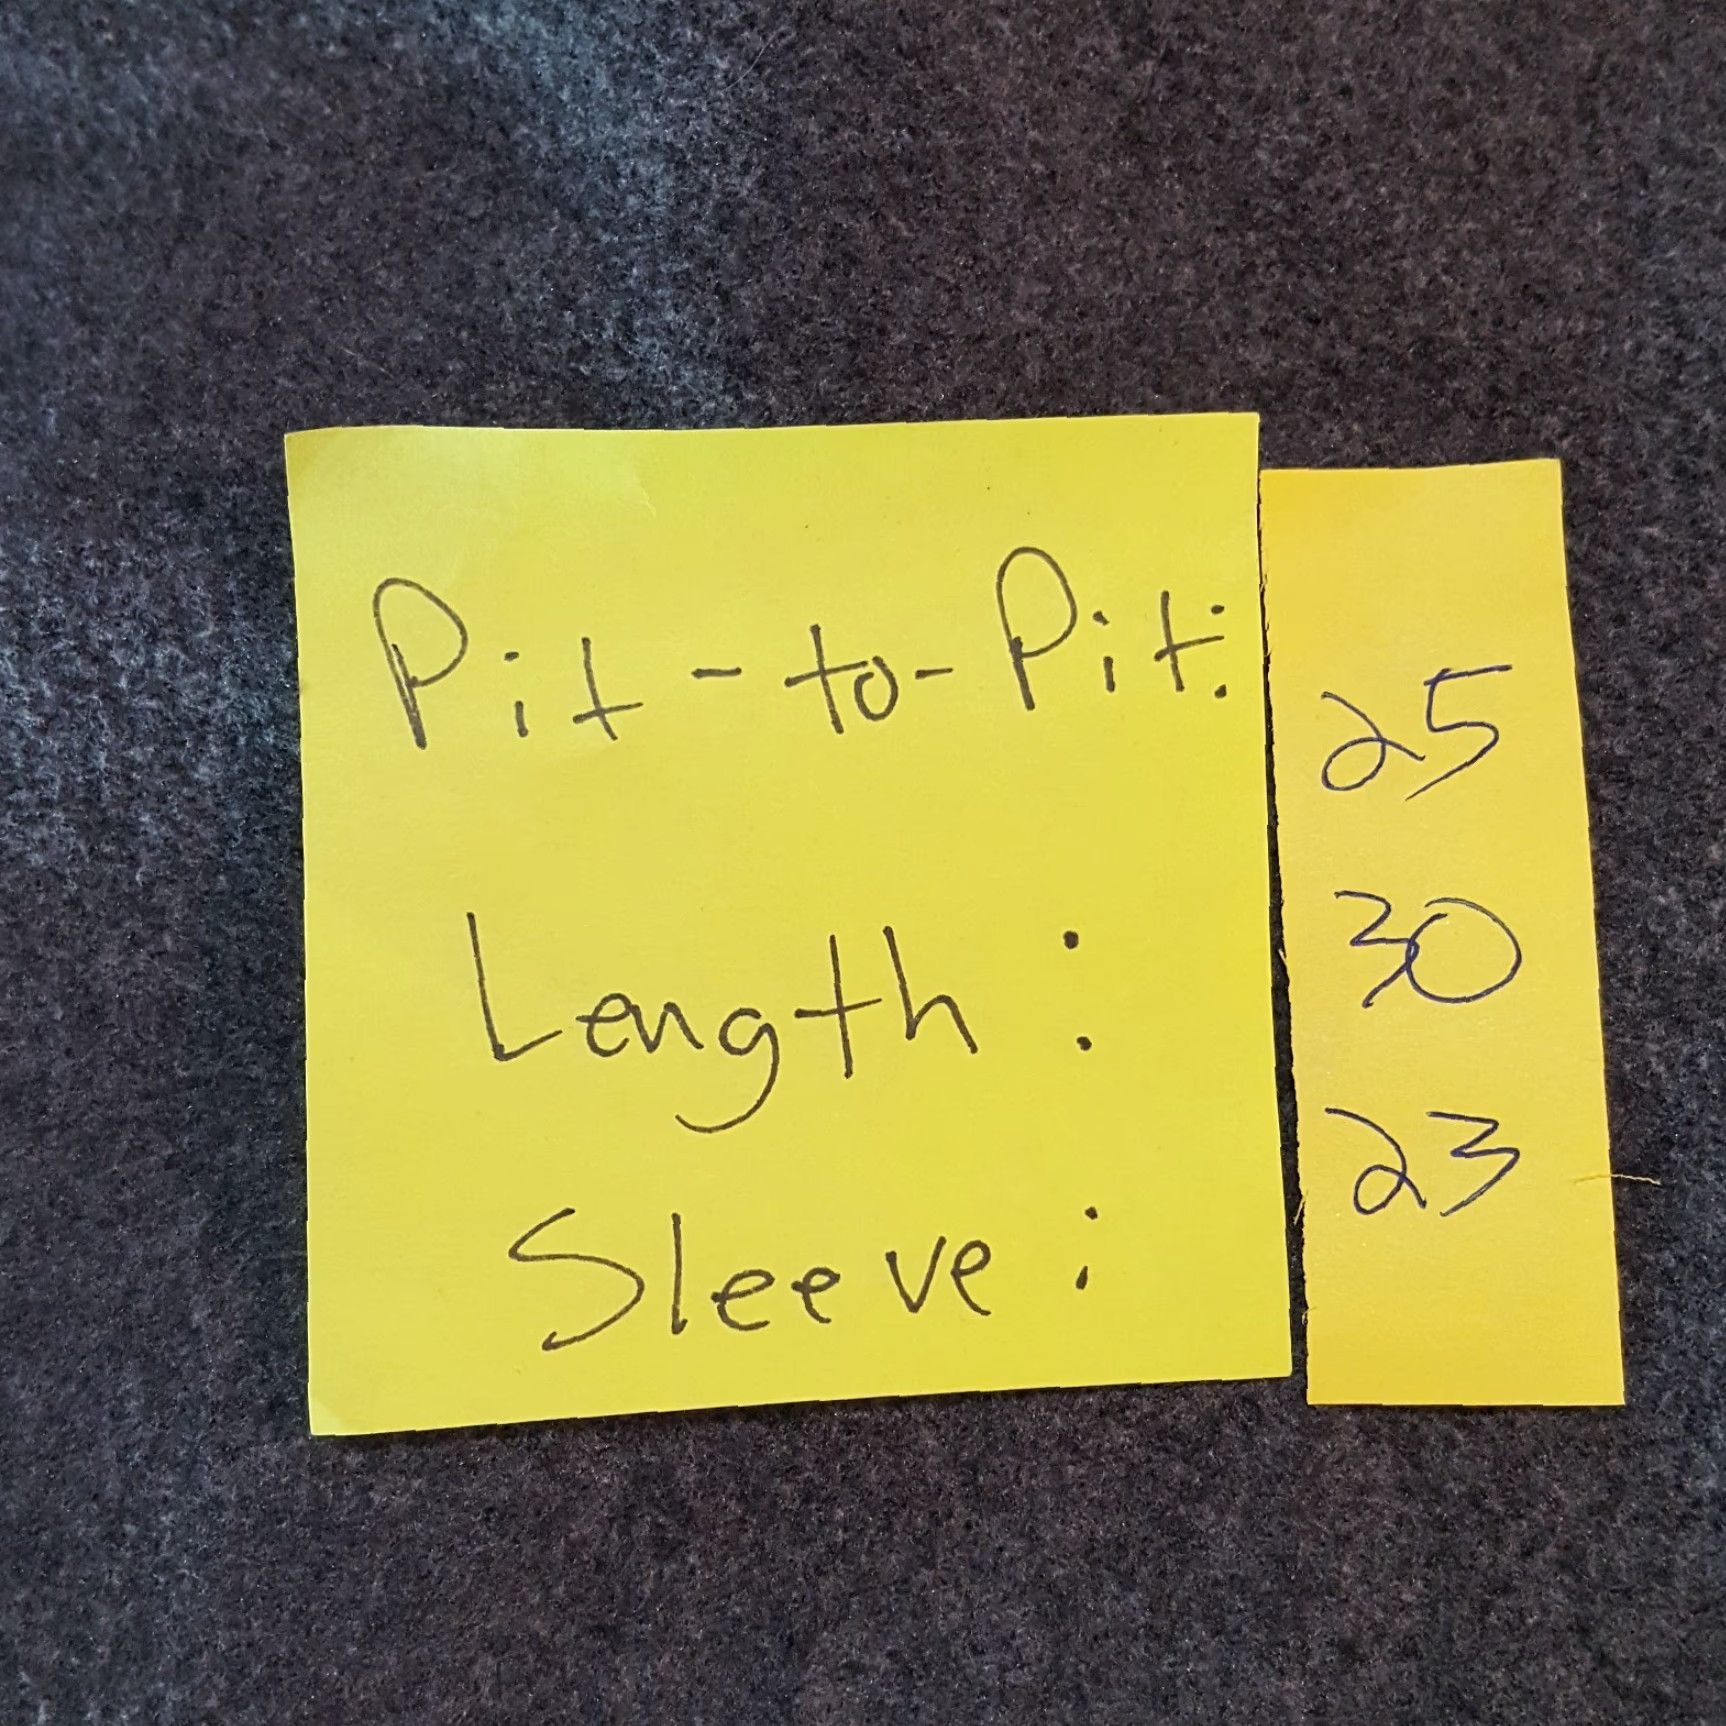 Pit-to-Pit: 25
Length: 30
Sleeve: 23